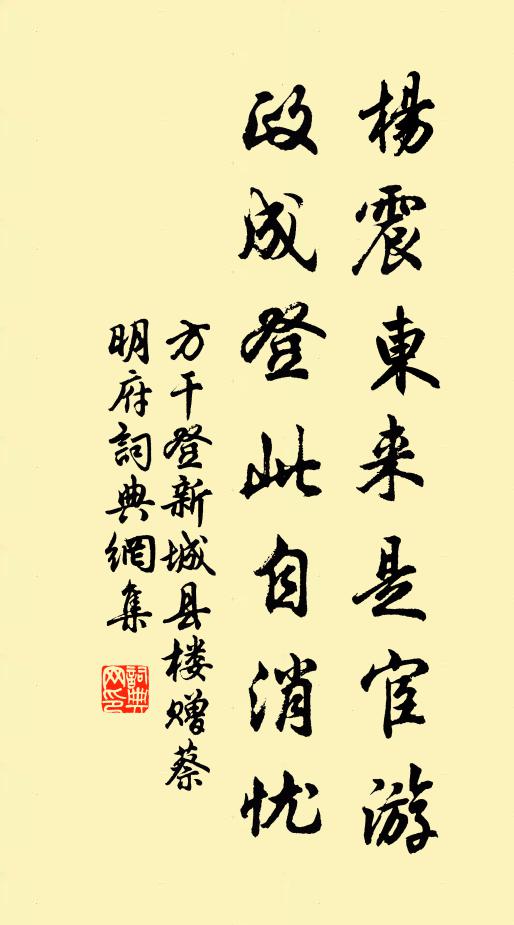 楊震東来是宦游
政成登此自消忧
方干登新城县楼赠蔡
明府詞典網集
詞典网印